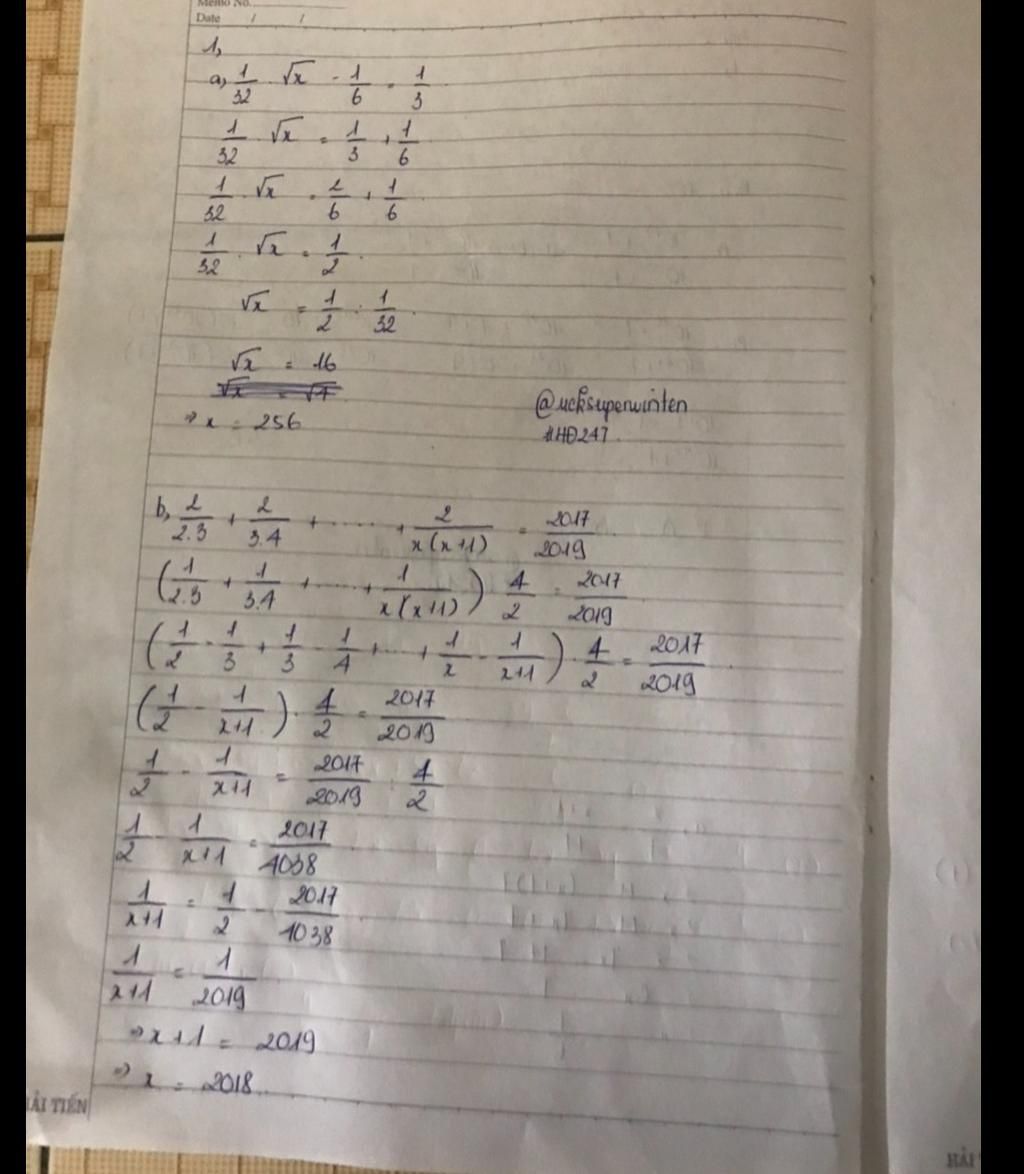 Memo No.
Date / /
1,
a, 1/32 . √x - 1/6 = 1/3
1/32 . √x = 1/3 + 1/6
1/32 . √x = 2/6 + 1/6
1/32 . √x = 1/2
√x = 1/2 : 1/32
√x = 16
⇒ x = 256
@ucksuperwinten
#HĐ247
b, 2/2.3 + 2/3.4 + ..... + 2/x(x+1) = 2017/2019
(1/2.3 + 1/3.4 + ..... + 1/x(x+1)) 1/2 = 2017/2019
(1/2 - 1/3 + 1/3 - 1/4 + ... + 1/x - 1/x+1) . 1/2 = 2017/2019
(1/2 - 1/x+1) . 1/2 = 2017/2019
1/2 - 1/x+1 = 2017/2019 : 1/2
1/2 - 1/x+1 = 2017/4038
1/x+1 = 1/2 - 2017/4038
1/x+1 = 1/2019
⇒ x + 1 = 2019
⇒ x = 2018
ẢI TIẾN
HẢI